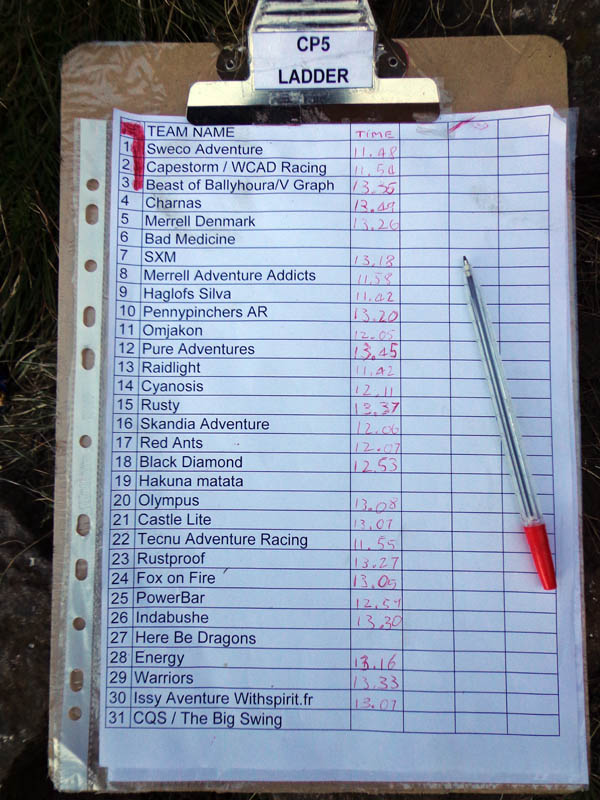 CP5
LADDER
TEAM NAME TIME
1 Sweco Adventure 11.48
2 Capestorm / WCAD Racing 11.54
3 Beast of Ballyhoura/V Graph 13.35
4 Charnas 13.49
5 Merrell Denmark 13.26
6 Bad Medicine
7 SXM 13.18
8 Merrell Adventure Addicts 11.58
9 Haglofs Silva 11.42
10 Pennypinchers AR 13.20
11 Omjakon 12.05
12 Pure Adventures 13.45
13 Raidlight 11.42
14 Cyanosis 12.11
15 Rusty 13.37
16 Skandia Adventure 12.06
17 Red Ants 12.07
18 Black Diamond 12.53
19 Hakuna matata
20 Olympus 13.08
21 Castle Lite 13.07
22 Tecnu Adventure Racing 11.55
23 Rustproof 13.27
24 Fox on Fire 13.05
25 PowerBar 12.59
26 Indabushe 13.30
27 Here Be Dragons
28 Energy 13.16
29 Warriors 13.33
30 Issy Aventure Withspirit.fr 13.07
31 CQS / The Big Swing